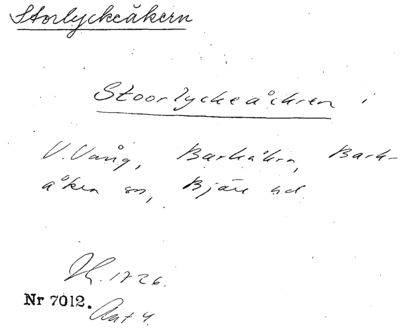 Storlyckeåkern
Stoorlyckeåckren i
V. Vång, Barkåkra, Bark-
åkra sn, Bjäre hd.
1726.
Nr 7012. Akt 4.